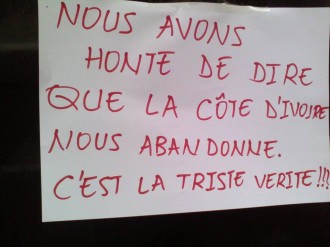 NOUS AVONS
HONTE DE DIRE
QUE LA CÔTE D'IVOIRE
NOUS ABANDONNE.
C'EST LA TRISTE VERITE!!!